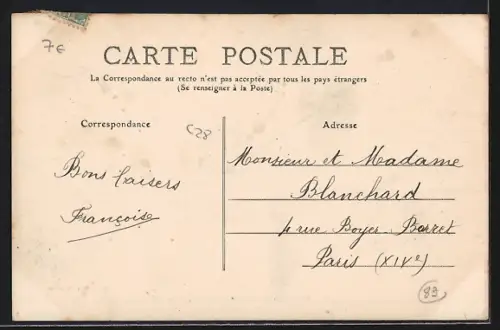 7€
CARTE POSTALE
La Correspondance au recto n'est pas acceptée par tous les pays étrangers
(Se renseigner à la Poste)
Correspondance
C28
Adresse
Bons baisers
Françoise
Monsieur et Madame
Blanchard
4 rue Boyer-Barret
Paris (XIVe)
89